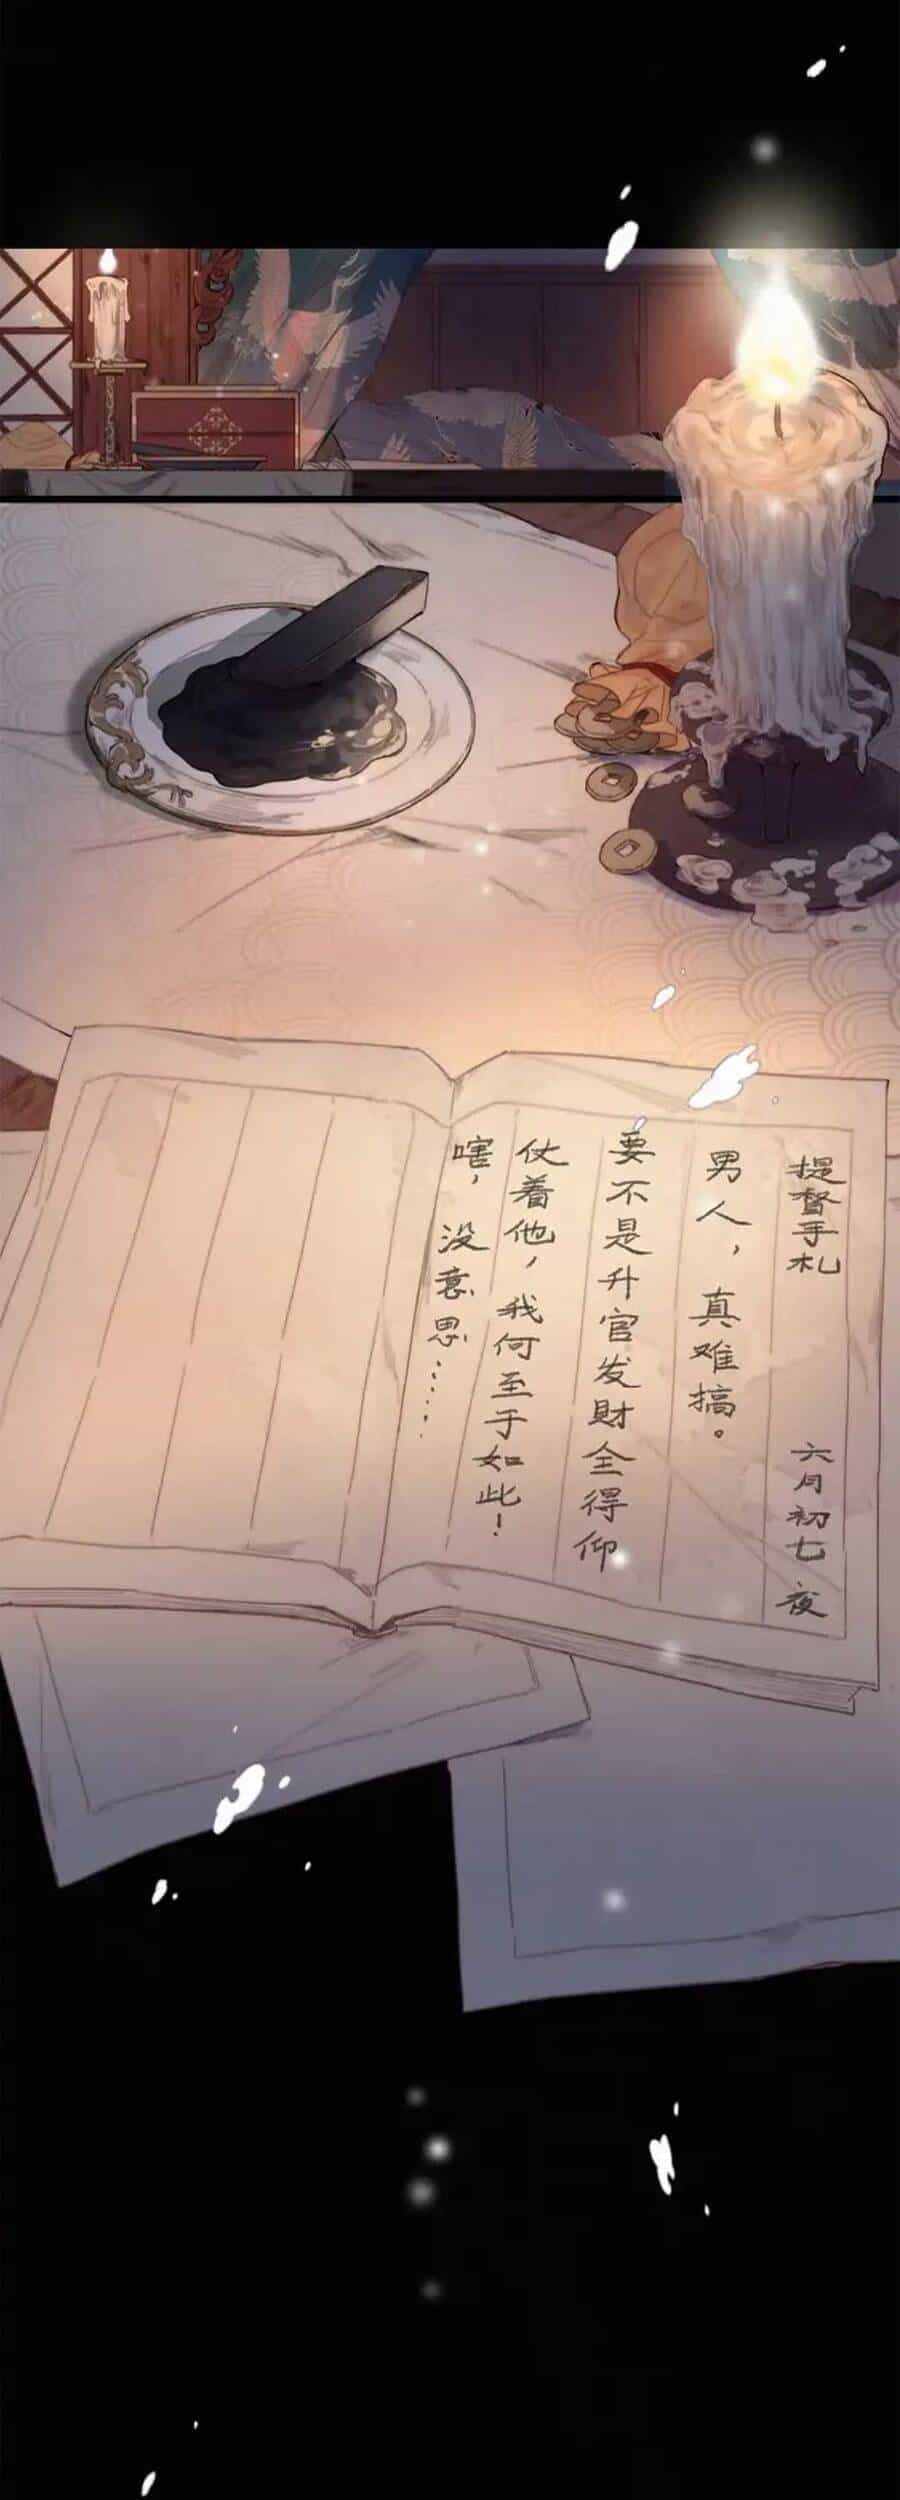 提督手札 六月初七 夜
男人，真难搞。
要不是升官发财全得仰
仗着他，我何至于如此！
嗐，没意思……